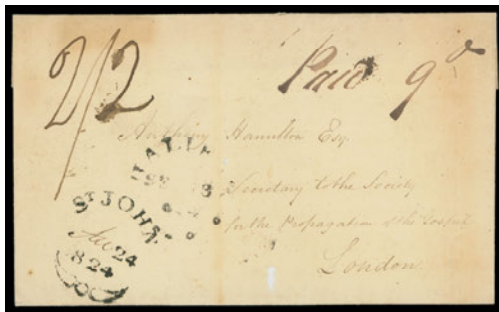 2/2
Paid 9d
Anthony Hamilton Esqr
Secretary to the Society
for the Propagation of the Gospel
London
ST JOHN
24
1824